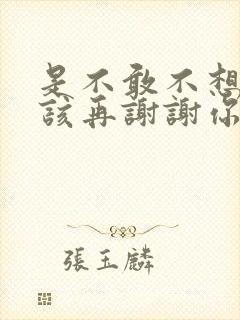 是不敢不想
該再謝謝你
張玉麟